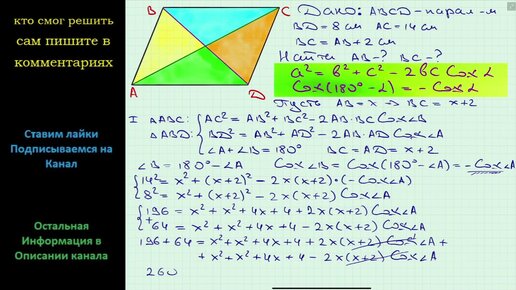 кто смог решить
сам пишите в
комментариях
Ставим лайки
Подписываемся на
Канал
Остальная
Информация в
Описании канала
B
C
A
D
Дано: ABCD - парал-м
BD = 8 см AC = 14 см
BC = AB + 2 см
Найти AB - ? BC - ?
a² = b² + c² - 2bc Cos∠
Cos(180° - ∠) = - Cos∠
Пусть AB = x ⇒ BC = x+2
I ΔABC: { AC² = AB² + BC² - 2AB·BC Cos∠B
ΔABD: { BD² = AB² + AD² - 2AB·AD Cos∠A
∠A + ∠B = 180° BC = AD = x+2
∠B = 180° - ∠A Cos∠B = Cos(180° - ∠A) = - Cos∠A
{ 14² = x² + (x+2)² - 2x(x+2)·(-Cos∠A)
8² = x² + (x+2)² - 2x(x+2) Cos∠A
{ 196 = x² + x² + 4x + 4 + 2x(x+2) Cos∠A
+ 64 = x² + x² + 4x + 4 - 2x(x+2) Cos∠A
196 + 64 = x² + x² + 4x + 4 + 2x(x+2) Cos∠A +
+ x² + x² + 4x + 4 - 2x(x+2) Cos∠A
260